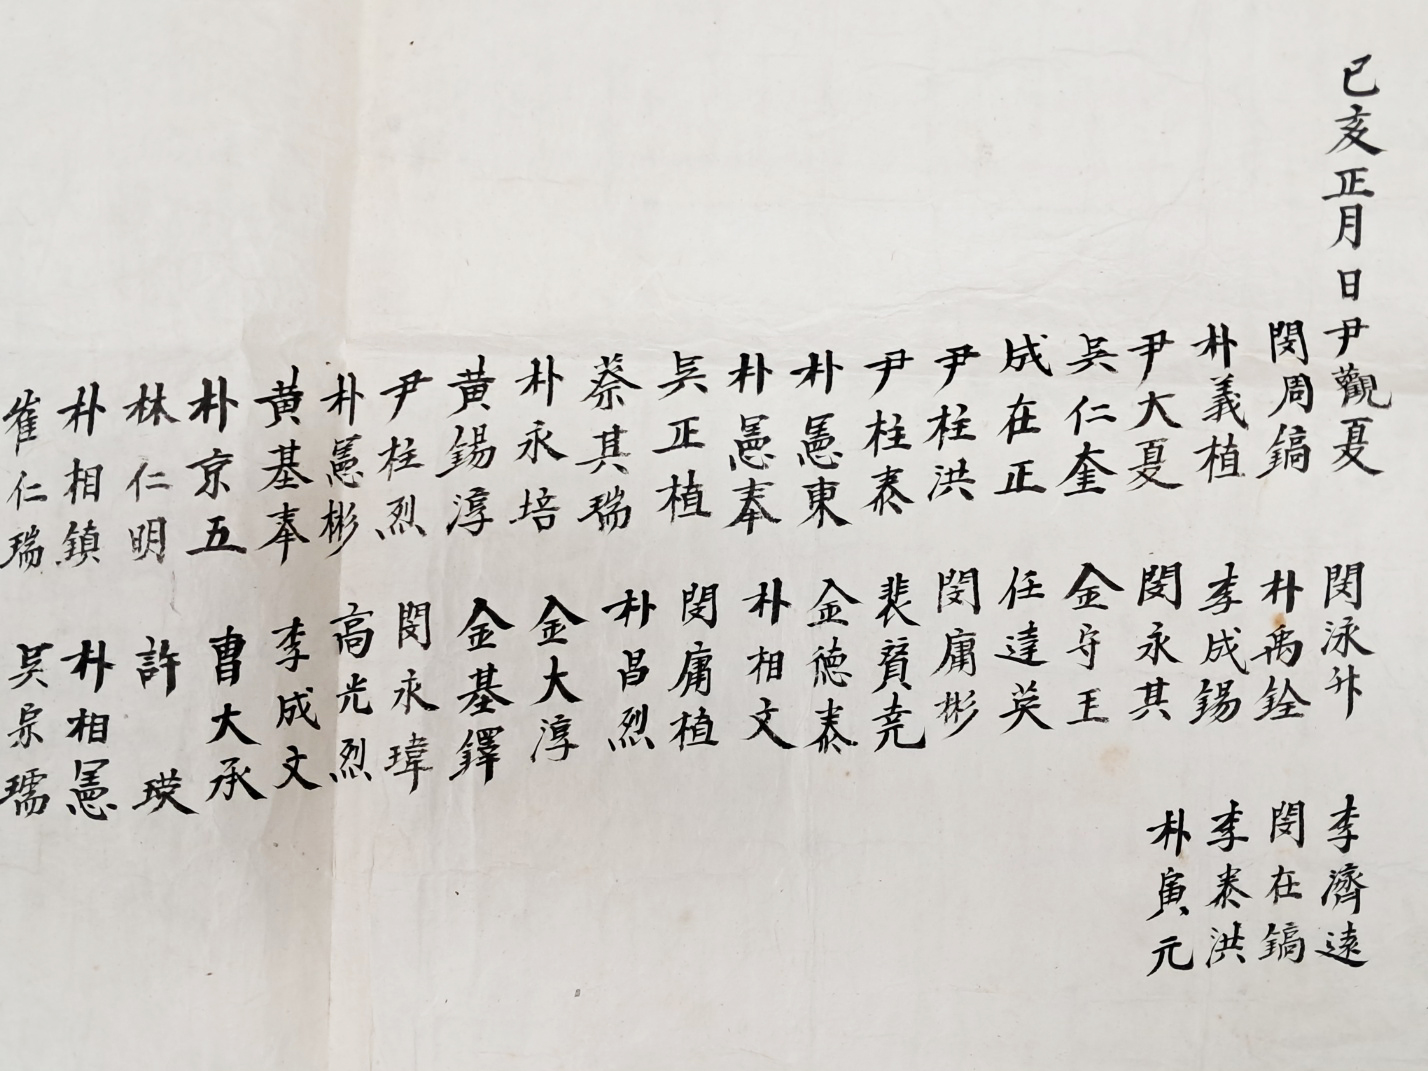 己亥正月 日 尹觀夏 閔泳升 李濟遠
閔周鎬 朴禹銓 閔在鎬
朴義植 李成錫 李泰洪
尹大夏 閔永其 朴寅元
吳仁奎 金守王
成在正 任達英
尹柱洪 閔庸彬
尹柱泰 裴賛尭
朴憲東 金德泰
朴憲奉 朴相文
吳正植 閔庸植
蔡其瑞 朴昌烈
朴永培 金大淳
黃錫淳 金基鐸
尹柱烈 閔永瑋
朴憲彬 高光烈
黃基奉 李成文
朴京五 曺大承
林仁明 許 瑛
朴相鎮 朴相憲
崔仁瑞 吳宗瓀